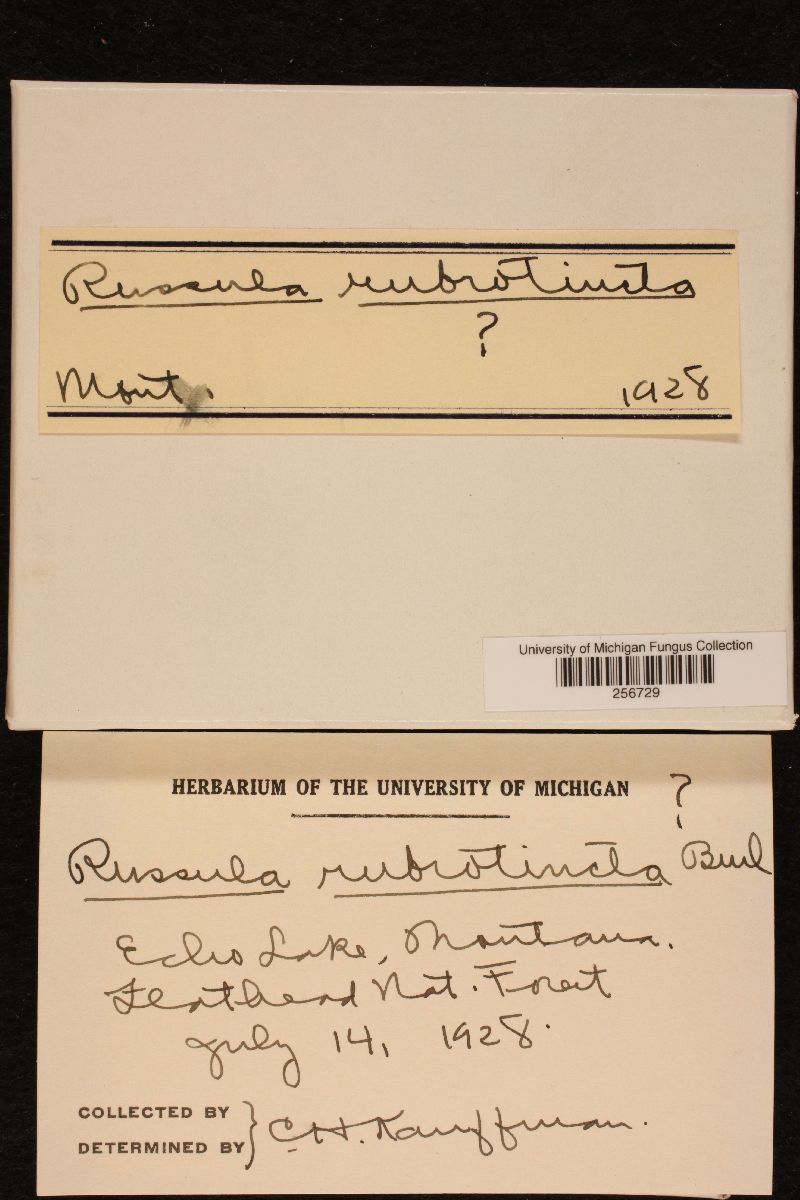 Russula rubrotincta
?
Mont. 1928
University of Michigan Fungus Collection
256729
HERBARIUM OF THE UNIVERSITY OF MICHIGAN
?
Russula rubrotincta Burl
Echo Lake, Montana.
Flathead Nat. Forest
July 14, 1928.
COLLECTED BY
DETERMINED BY } C.H. Kauffman.